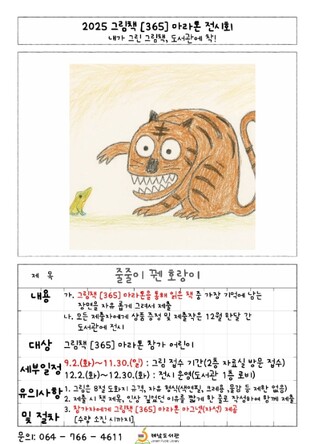 2025 그림책 [365] 마라톤 전시회
내가 그린 그림책, 도서관에 착!
제 목
줄줄이 꿴 호랑이
내용
가. 그림책 [365] 마라톤을 통해 읽은 책 중 가장 기억에 남는
장면을 자유 롭게 그려서 제출
나. 모든 제출자에게 상품 증정 및 제출작은 12월 한달 간
도서관에 전시
대상
그림책 [365] 마라톤 참가 어린이
세부일정
9.2.(화)~11.30.(일) : 그림 접수 기간(2층 자료실 방문 접수)
12.2.(화)~12.30.(화) : 전시 운영(도서관 1층 로비)
유의사항
및 절차
1. 그림은 8절 도화지 규격, 자유 형식(색연필, 크레용, 물감 등 제한 없음)
2. 제출 시 책 제목, 인상 깊었던 이유를 짧게 한 줄로 작성하여 함께 제출
3. 참가자에게 그림책 [365] 마라톤 마그넷(자석) 제공
(수량 소진 시까지)
문의: 064 - 766 - 4611